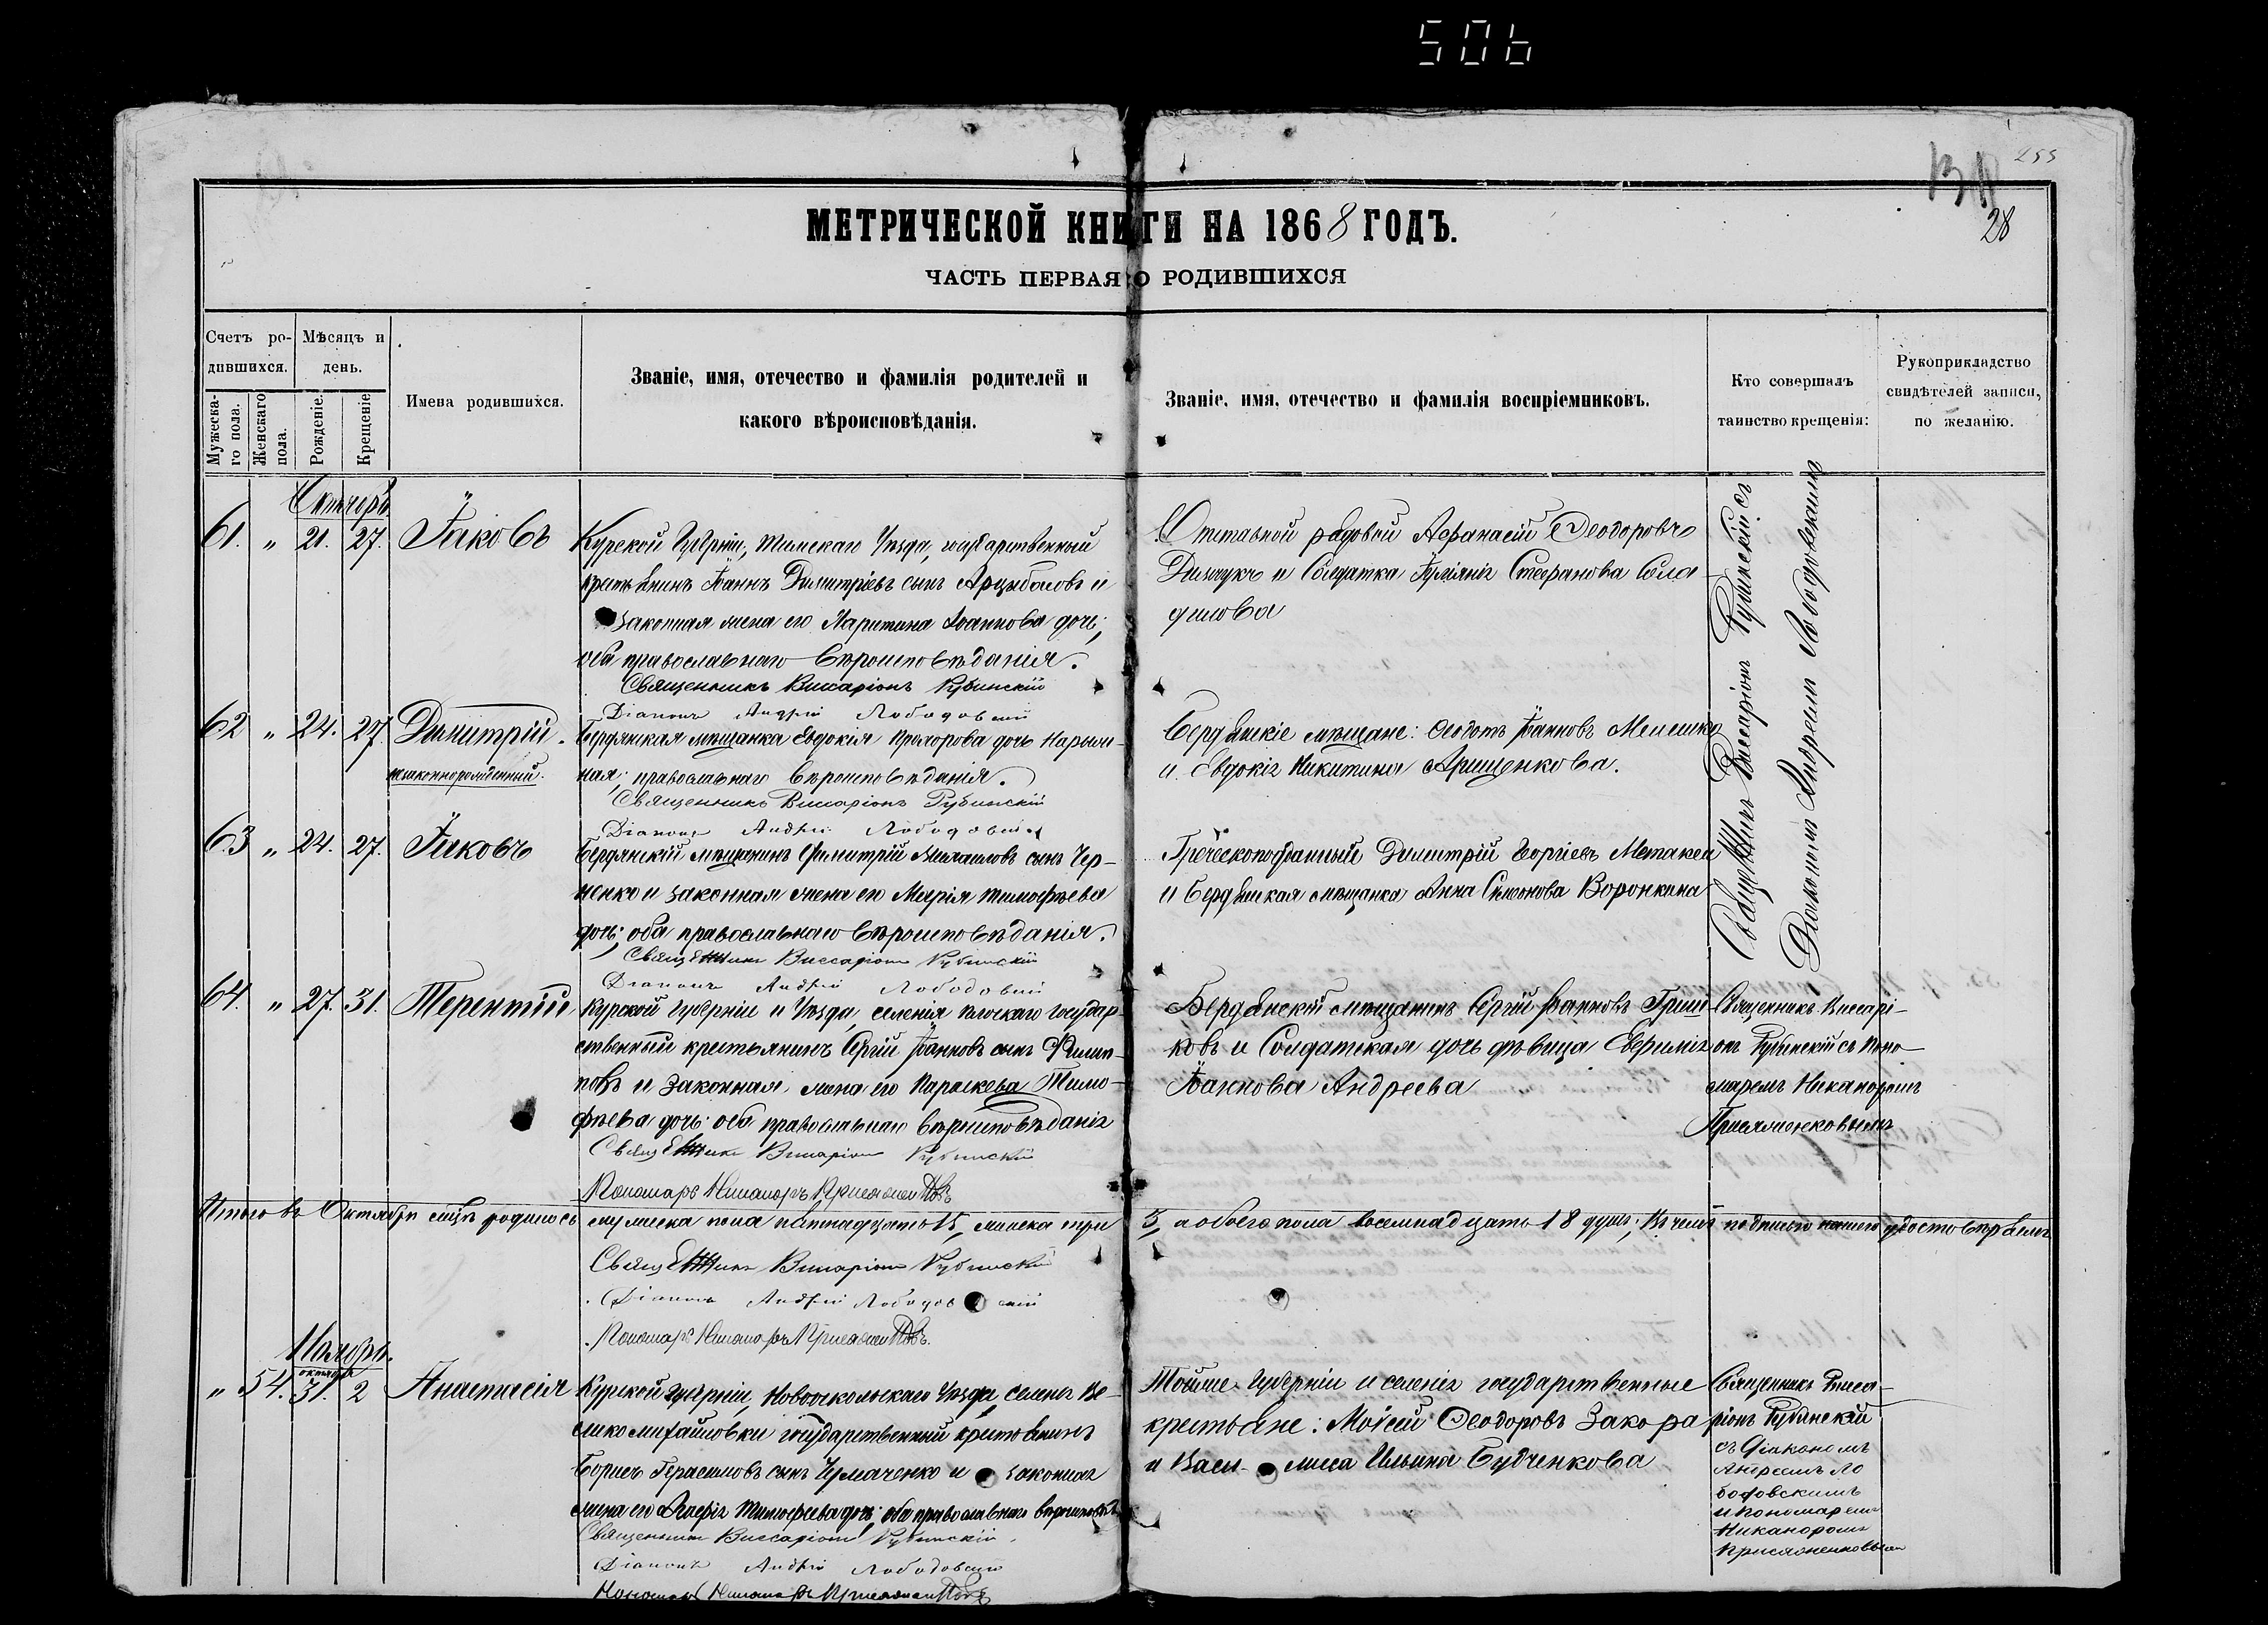 506
255
28
МЕТРИЧЕСКОЙ КНИГИ НА 1868 ГОДЪ.
ЧАСТЬ ПЕРВАЯ О РОДИВШИХСЯ
Счетъ ро-
дившихся.
Мѣсяцъ и
день.
Мужеска-
го пола.
Женскаго
пола.
Рожденіе.
Крещеніе
Имена родившихся.
Званіе, имя, отечество и фамилія родителей и
какого вѣроисповѣданія.
Званіе, имя, отечество и фамилія воспріемниковъ.
Кто совершалъ
таинство крещенія:
Рукоприкладство
свидѣтелей записи,
по желанію.
Октябрь
61. " 21. 27. Іаковъ
Курской Губерніи, Тимскаго Уѣзда, государственный
крестьянинъ Іоаннъ Димитріевъ сынъ и
законная жена его Іоаннова дочь;
оба православнаго вѣроисповѣданія.
Священникъ Виссаріонъ Рубинскій
Діаконъ Андрей Лободовскій
рядовой Аѳанасій Ѳеодоровъ
и Солдатка Стефанова
Священникъ Виссаріонъ Рубинскій съ
Діакономъ Андреемъ Лободовскимъ
62 " 24. 27. Димитрій.
незаконнорожденный.
Бердянская мѣщанка Евдокія Прохорова дочь Нарыж-
ная; православнаго вѣроисповѣданія.
Священникъ Виссаріонъ Рубинскій
Діаконъ Андрей Лободовскій
Бердянскіе мѣщане: Ѳеодотъ Іоанновъ Мелешко
и Евдокія Никитина Арищенкова.
63 " 24. 27. Іаковъ
Бердянскій мѣщанинъ Димитрій Михаиловъ сынъ Чер-
ненко и законная жена его Марія Тимофѣева
дочь; оба православнаго вѣроисповѣданія.
Священникъ Виссаріонъ Рубинскій
Діаконъ Андрей Лободовскій
Греческоподданный Димитрій Георгіевъ Метакса
и Бердянская мѣщанка Анна Симонова Воронкина
64. " 27. 31. Терентій
Курской Губерніи и Уѣзда, селенія государ-
ственный крестьянинъ Сергій Іоанновъ сынъ Филип-
повъ и законная жена его Параскева Тимо-
фѣева дочь; оба православнаго вѣроисповѣданія
Священникъ Виссаріонъ Рубинскій
Пономарь Никаноръ Присяженковъ
Бердянскій мѣщанинъ Сергій Іоанновъ Гриш-
ковъ и Солдатская дочь дѣвица Евфимія
Іоаннова Андреева
Священникъ Виссарі-
онъ Рубинскій съ Поно-
маремъ Никаноромъ
Присяженковымъ
Итого въ Октябрѣ мцѣ родилось мужеска пола пятнадцать 15, женска три 3, а обоего пола восемнадцать 18 душъ; въ чемъ подписью нашею удостовѣряемъ
Священникъ Виссаріонъ Рубинскій
Діаконъ Андрей Лободовскій
Пономарь Никаноръ Присяженковъ.
Ноябрь.
октября
" 54. 31. 2 Анастасія
Курской Губерніи, Новооскольскаго Уѣзда, селенія Ве-
ликомихайловки государственный крестьянинъ
Борисъ Герасимовъ сынъ Чумаченко и законная
жена его Тимофеева дочь; оба православнаго вѣроисповѣд.
Священникъ Виссаріонъ Рубинскій
Діаконъ Андрей Лободовскій
Пономарь Никаноръ Присяженковъ
Тойже Губерніи и селенія государственные
крестьяне: Моѵсей Ѳеодоровъ Закора
и Васи-лиса Ильина Будченкова
Священникъ Висса-
ріонъ Рубинскій
съ Діакономъ
Андреемъ Ло
бодовскимъ
и Пономаремъ
Никаноромъ
Присяженковымъ